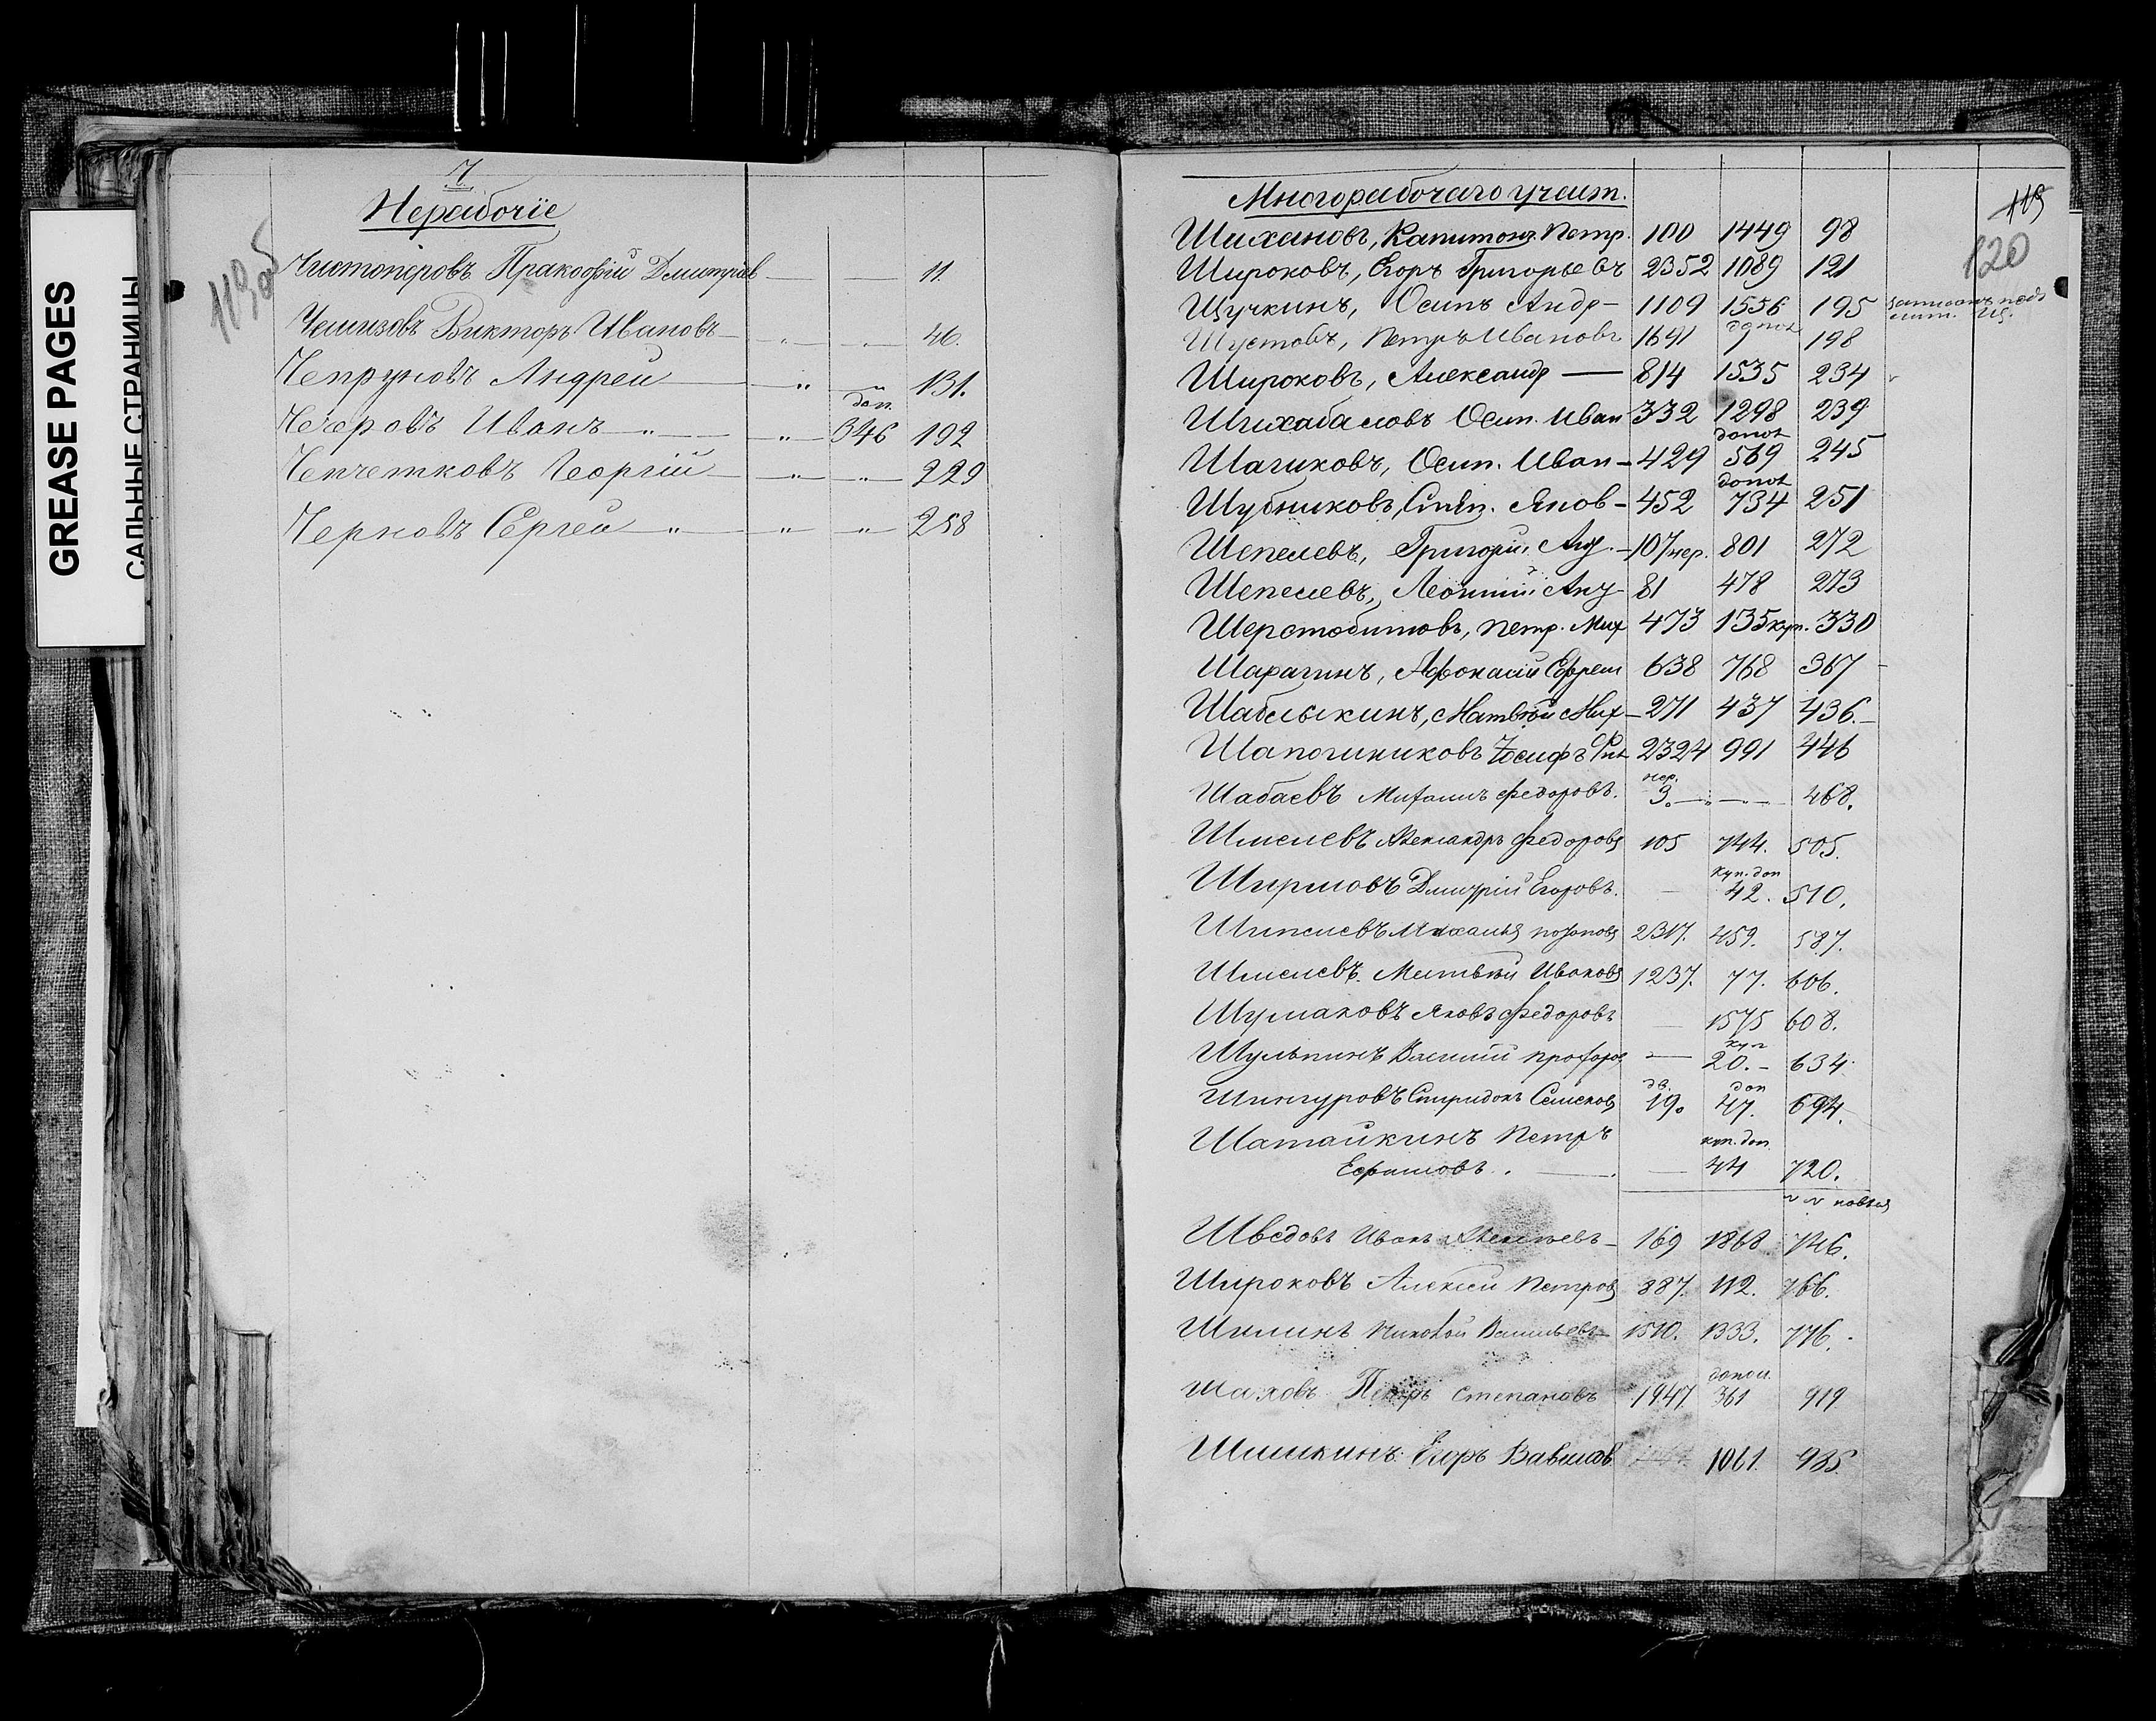 GREASE PAGES
САЛЬНЫЕ СТРАНИЦЫ
Ч
Нерабочiе
119об
Чистоперовъ Пракофiй Дмитрiев — — 11.
Викторъ Ивановъ — „ — „ — 46.
Чепруновъ Андрей — „ — „ — 131.
доп.
Чечеровъ Иванъ „ — „ — 346 192
Чепчетковъ Георгiй — „ — „ — 229
Черновъ Сергей — „ — „ — „ — 258
Многорабочаго участ.
119
120
Шихановъ, Капитонъ Петр. 100 1449 98
Широковъ, Егоръ Григорьевъ 2352 1089 121
Щучкинъ, Осипъ Андр — 1109 1556 195 записанъ подъ
лит. Щ.
Шустовъ, Петръ Ивановъ 1691 допол 198
Широковъ, Александр — 814 1535 234
Шихабаловъ Осип. Иван 332 1298 239
допол
Шагиковъ, Осип. Иван — 429 569 245
допол
Шубниковъ, Степ. Яков — 452 734 251
Шепелевъ, Григорiй — 107 нер. 801 272
Шепелевъ, 81 478 273
Шерстобитовъ, Петр. Мих 473 135 куп. 330
Шарагинъ, Афонасiй Ефрем 638 768 367
Шаблыкинъ, Матвѣй Мих — 271 437 436.
Шапошниковъ Iосифъ 2324 991 446
нер.
Шабаевъ Михаилъ Федоровъ. 3. — — 468.
Шмелевъ Александръ Федоровъ 105 744. 505.
куп. доп
Ширмовъ Дмитрiй Егоровъ. — 42. 510.
Шипелевъ Михаилъ 2317. 459. 587.
Шмелевъ. Матвѣй Ивановъ 1237. 77. 606.
Шумаковъ Яковъ Федоровъ — 1575 608.
куп
Шульпинъ Василiй Прохоров — 20. — 634.
дв. доп
Шингуровъ Спиридонъ Семенов 19. 47. 694.
Шатайкинъ Петръ куп. доп.
Ефимовъ. — — 44 720.
новыя
Шведовъ Иванъ Алексѣевъ — 169 1868 746.
Широковъ Алексѣй Петровъ 887. 112. 766.
Шилинъ Николай Васильевъ 1510. 1333. 776.
допол.
Шаховъ Петръ Степановъ 1947. 361 919.
Шишкинъ. Егоръ Вавилов. 1061. 935.